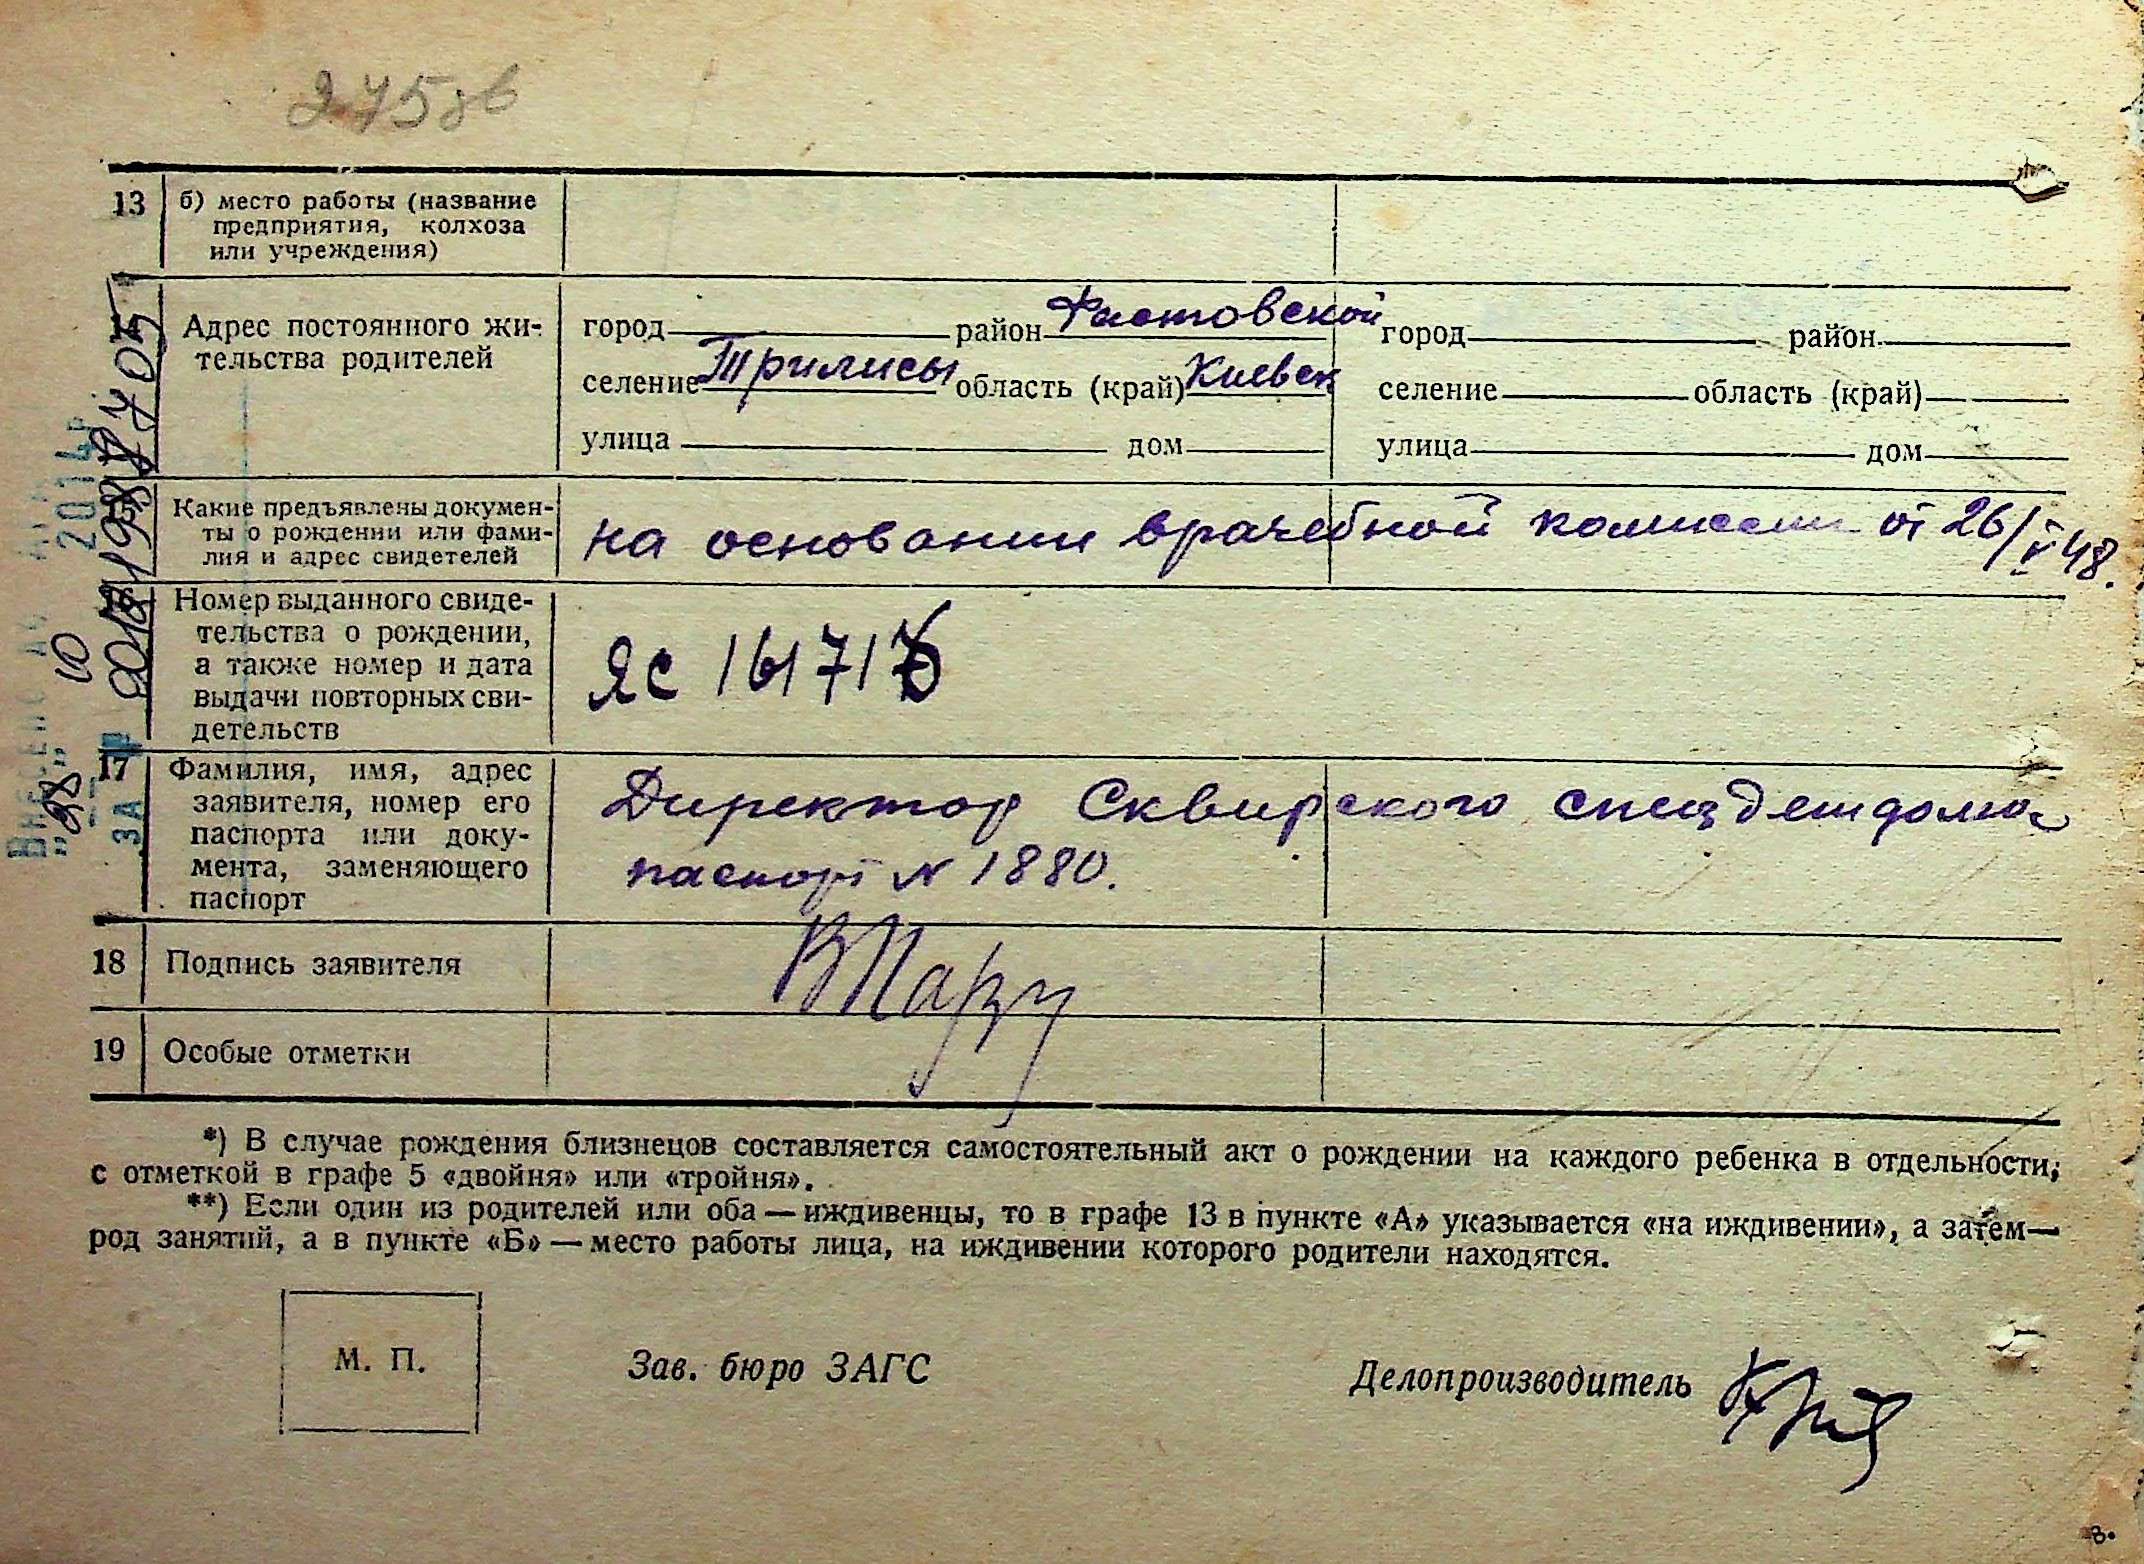 275зв
13 б) место работы (название
предприятия, колхоза
или учреждения)
14 Адрес постоянного жи-
тельства родителей
город район Фастовской
селение Трилисы область (край) Киевск
улица дом
город район
селение область (край)
улица дом
15 Какие предъявлены докумен-
ты о рождении или фами-
лия и адрес свидетелей
на основании врачебной комиссии от 26/V 48.
16 Номер выданного свиде-
тельства о рождении,
а также номер и дата
выдачи повторных сви-
детельств
ЯС 161716
17 Фамилия, имя, адрес
заявителя, номер его
паспорта или доку-
мента, заменяющего
паспорт
Директор Сквирского спецдетдома
паспорт № 1880.
18 Подпись заявителя
19 Особые отметки
*) В случае рождения близнецов составляется самостоятельный акт о рождении на каждого ребенка в отдельности,
с отметкой в графе 5 «двойня» или «тройня».
**) Если один из родителей или оба — иждивенцы, то в графе 13 в пункте «А» указывается «на иждивении», а затем—
род занятий, а в пункте «Б» — место работы лица, на иждивении которого родители находятся.
М. П.
Зав. бюро ЗАГС
Делопроизводитель
"28" 10 2014
ЗА №
8.